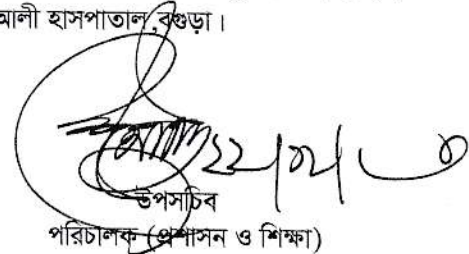 আলী হাসপাতাল,বগুড়া।
উপসচিব
পরিচালক (প্রশাসন ও শিক্ষা)